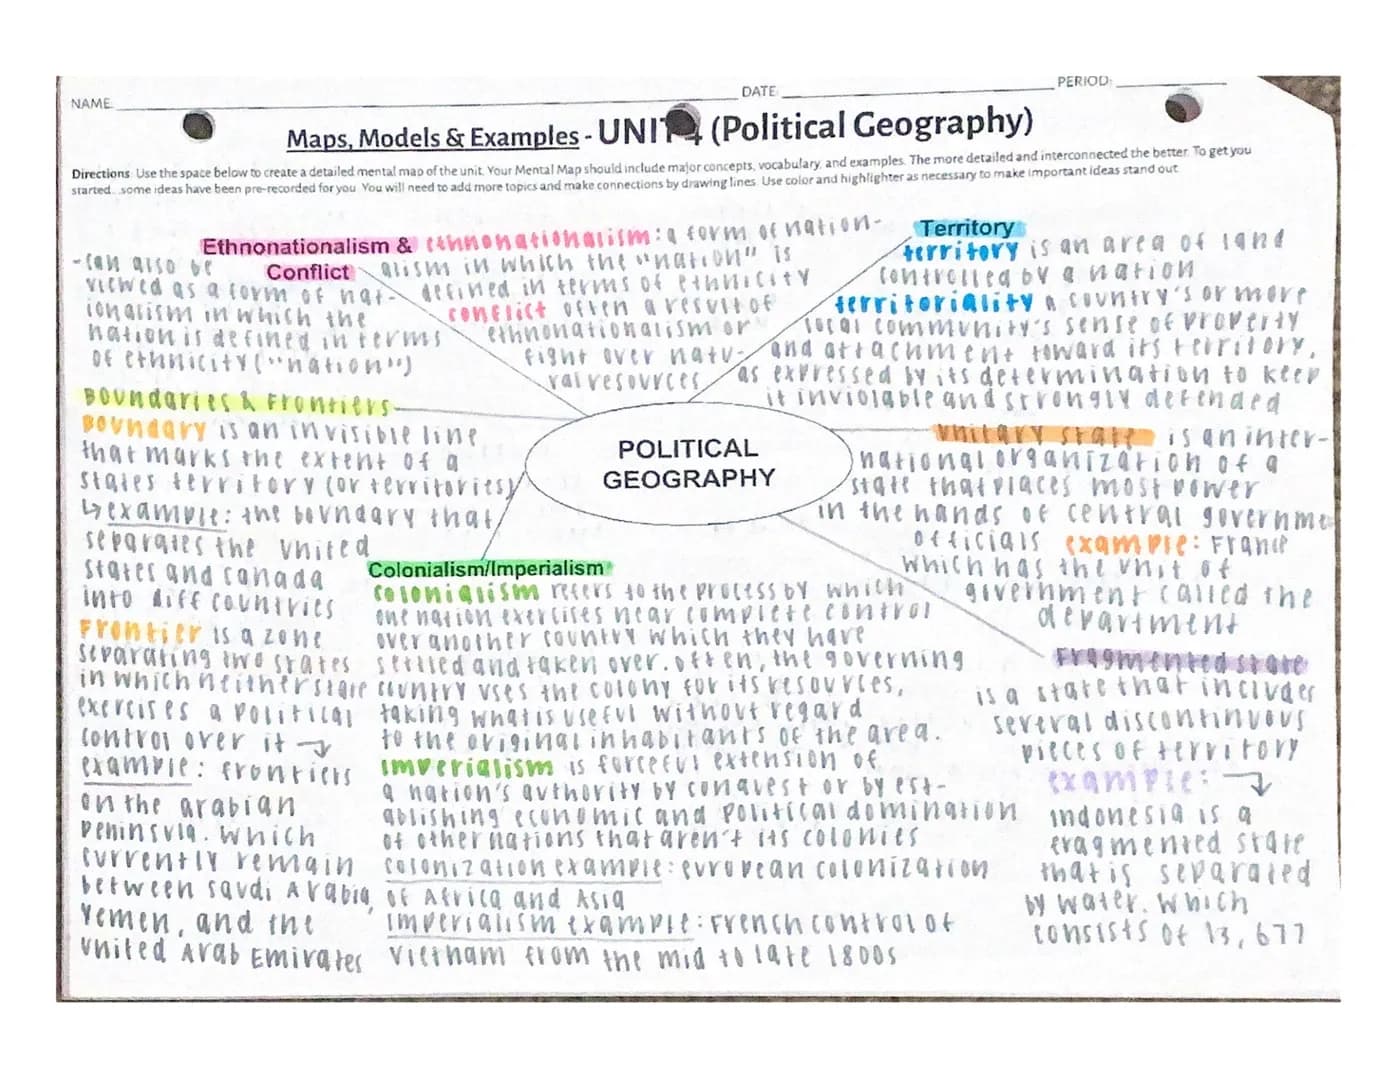 NAME: DATE: PERIOD:
Maps, Models & Examples - UNIT 4 (Political Geography)
Directions: Use the space below to create a detailed mental map of the unit. Your Mental Map should include major concepts, vocabulary, and examples. The more detailed and interconnected the better. To get you
started...some ideas have been pre-recorded for you. You will need to add more topics and make connections by drawing lines. Use color and highlighter as necessary to make important ideas stand out.
Ethnonationalism &
Conflict
ethnonationalism: a form of nation-
alism in which the "nation" is
defined in terms of ethnicity
conflict often a result of
ethnonationalism or
fight over natu-
ral resources
-can also be
viewed as a form of nat-
ionalism in which the
nation is defined in terms
of ethnicity ("nation")
Territory
territory is an area of land
controlled by a nation
territoriality a country's or more
local community's sense of property
and attachment toward its territory,
as expressed by its determination to keep
it inviolable and strongly defended
Boundaries & Frontiers
Boundary is an invisible line
that marks the extent of a
states territory (or territories)
↳ example: the boundary that
separates the United
States and Canada
into diff countries
Frontier is a zone
separating two states
in which neither state
exercises a political
control over it →
example: frontiers
on the arabian
Peninsula. Which
currently remain
between Saudi Arabia,
Yemen, and the
United Arab Emirates
POLITICAL
GEOGRAPHY
unitary state is an inter-
national organization of a
state that places most power
in the hands of central governme
officials example: France
which has the unit of
government called the
department
Colonialism/Imperialism
colonialism refers to the process by which
one nation exercises near complete control
over another country which they have
settled and taken over. often, the governing
country uses the colony for its resources,
taking what is useful without regard
to the original inhabitants of the area.
imperialism is forceful extension of
a nation's authority by conquest or by est-
ablishing economic and political domination
of other nations that aren't its colonies
colonization example: european colonization
of Africa and Asia
imperialism example: French control of
Vietnam from the mid to late 1800s
Fragmented state
is a state that includes
several discontinuous
pieces of territory
example:
indonesia is a
fragmented state
that is separated
by water. Which
consists of 13,677